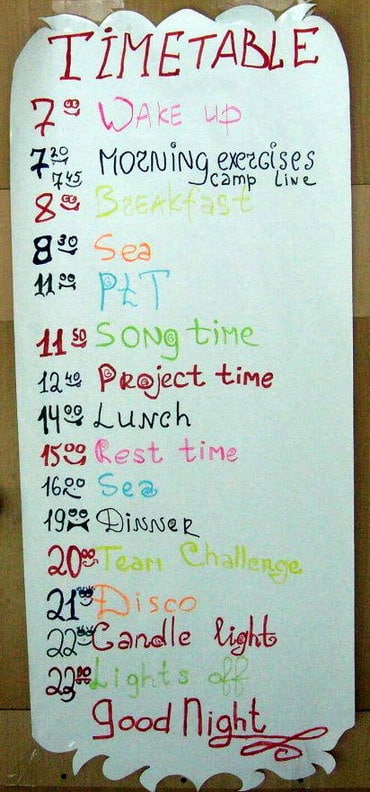 TIMETABLE
7 00 WAKE up
7 20 MORNING exercises
7 45 Camp Live
8 00 Breakfast
8 30 Sea
11 00 PLT
11 50 SONG time
12 40 Project time
14 00 LUNCH
15 00 Rest time
16 20 Sea
19 00 DINNER
20 00 Team Challenge
21 00 Disco
22 Candle light
Lights off
good Night